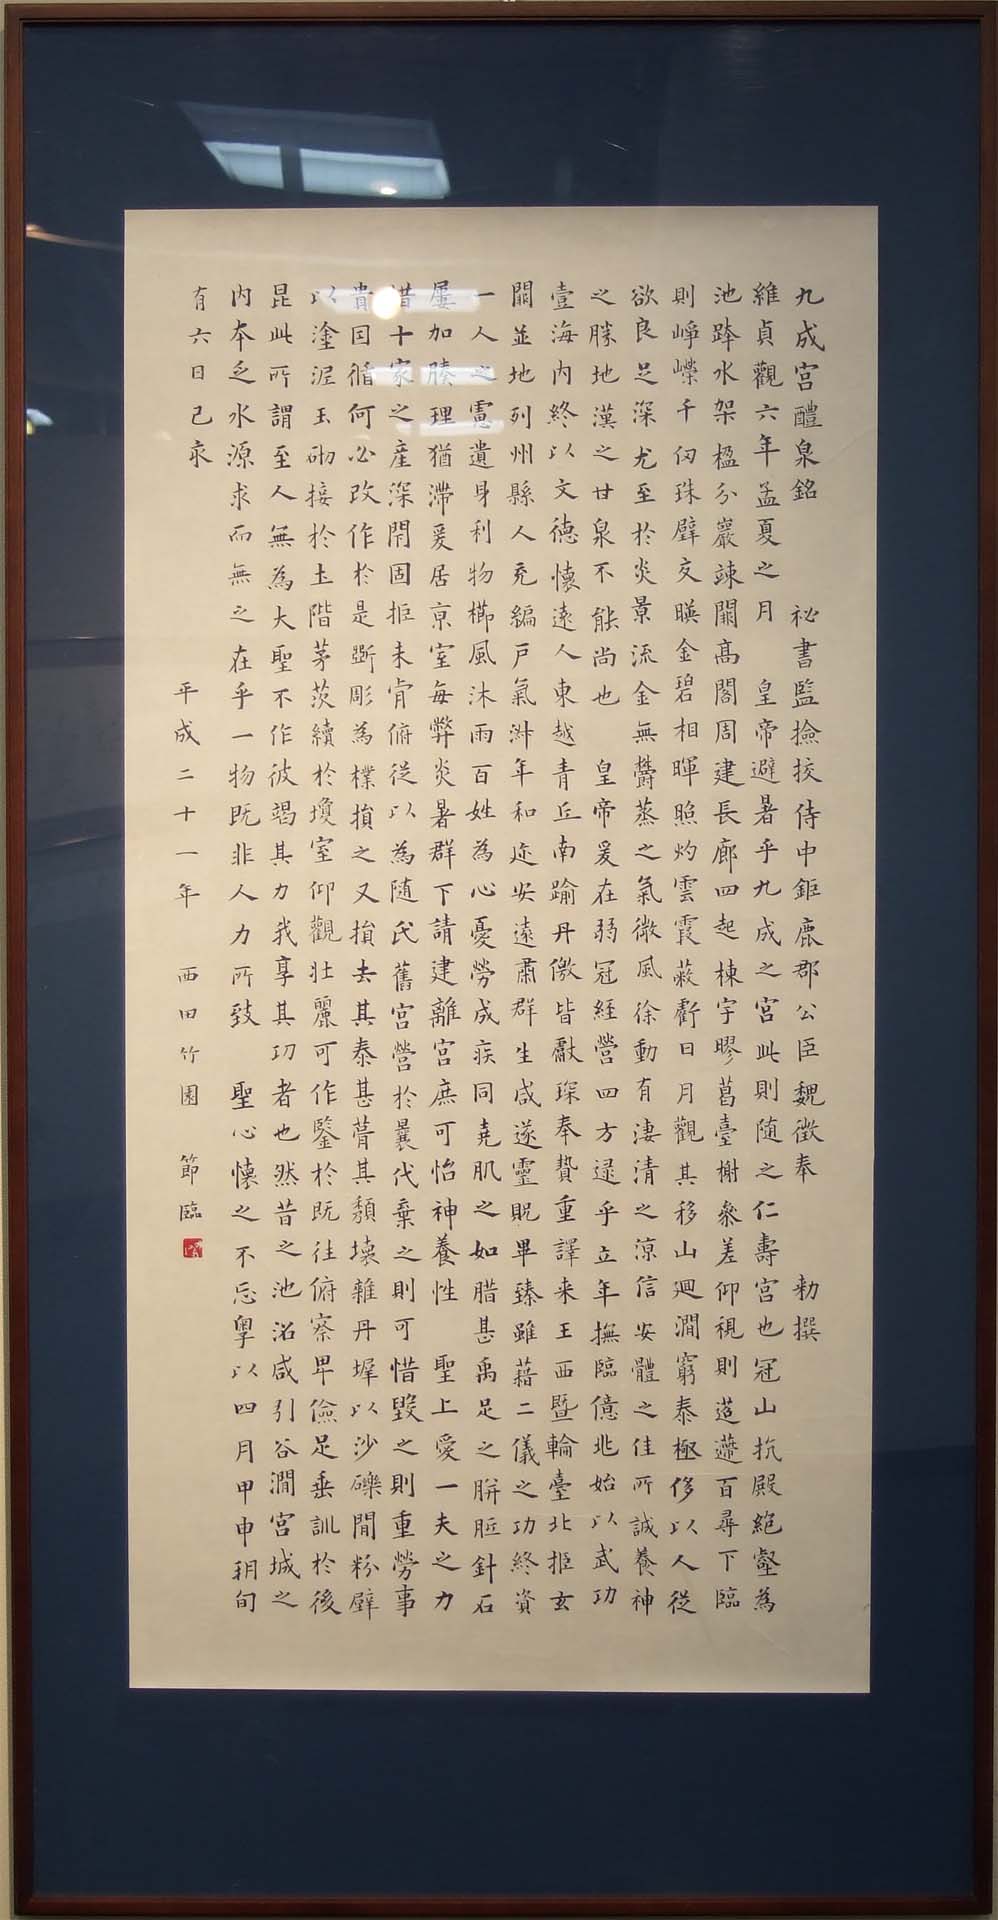 九成宮醴泉銘　祕書監撿挍侍中鉅鹿郡公臣魏徵奉　勅撰
維貞觀六年孟夏之月　皇帝避暑乎九成之宮此則随之仁壽宮也冠山抗殿絕壑為
池跨水架楹分巖竦闕高閣周建長廊四起棟宇膠葛臺榭參差仰視則迢遰百尋下臨
則崢嶸千仞珠璧交暎金碧相暉照灼雲霞蔽虧日月觀其移山迴澗窮泰極侈以人從
欲良足深尤至於炎景流金無欝蒸之氣微風徐動有淒清之涼信安體之佳所誠養神
之勝地漢之甘泉不能尚也　皇帝爰在弱冠經營四方逯乎立年撫臨億兆始以武功
壹海內終以文德懷遠人東越青丘南踰丹徼皆獻琛奉贄重譯来王西暨輪臺北拒玄
闕並地列州縣人充編戶氣淑年和迩安遠肅群生咸遂靈貺畢臻雖藉二儀之功終資
一人之慮遺身利物櫛風沐雨百姓為心憂勞成疾同堯肌之如腊甚禹足之胼胝針石
屢加腠理猶滯爰居京室每弊炎暑群下請建離宮庶可怡神養性　聖上愛一夫之力
惜十家之産深閇固拒未肯俯從以為随氏舊宮營於曩代棄之則可惜毀之則重勞事
貴因循何必改作於是斲彫為樸損之又損去其泰甚葺其頹壞雜丹墀以沙礫間粉壁
以塗渥玉砌接於土階茅茨續於瓊室仰觀壯麗可作鑒於既往俯察卑儉足垂訓於後
昆此所謂至人無為大聖不作彼竭其力我享其功者也然昔之池沼咸引谷澗宮城之
內本乏水源求而無之在乎一物既非人力所致　聖心懷之不忘粤以四月甲申朔旬
有六日己亥
平成二十一年　西田竹園　節臨